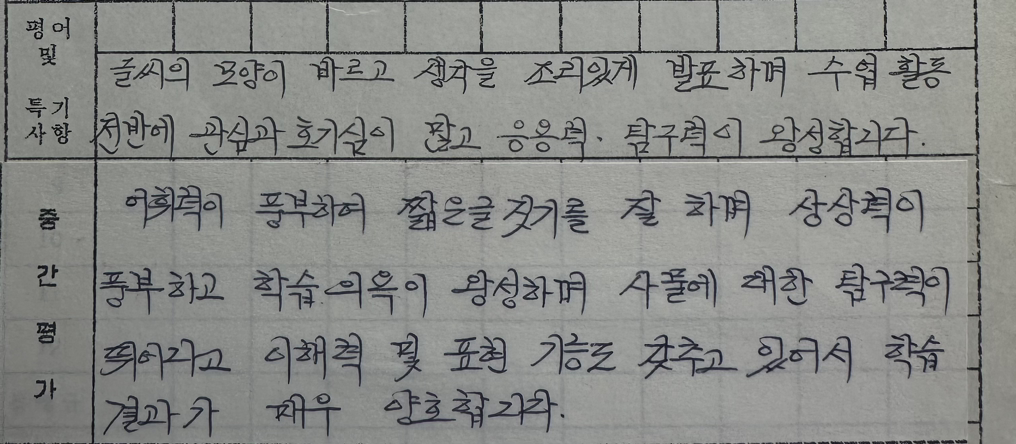 평어
및
특기
사항
글씨의 모양이 바르고 생각을 조리있게 발표하며 수업 활동
전반에 관심과 호기심이 많고 응용력·탐구력이 왕성합니다.
중간평가
어휘력이 풍부하여 짧은글짓기를 잘 하며 상상력이
풍부하고 학습 의욕이 왕성하며 사물에 대한 탐구력이
뛰어나고 이해력 및 표현 기능도 갖추고 있어서 학습
결과가 매우 양호합니다.